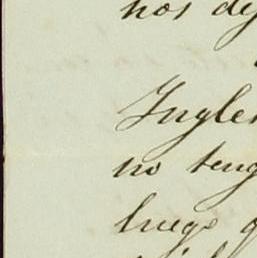 nos de
Ingles
no teng
luego